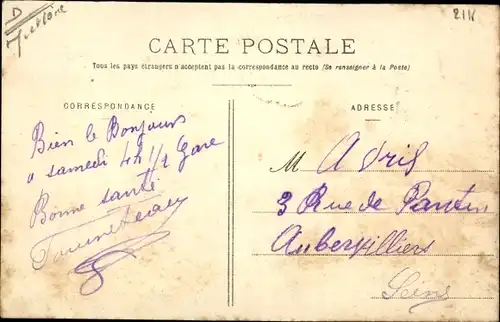 D
CARTE POSTALE
Tous les pays étrangers n'acceptent pas la correspondance au recto (Se renseigner à la Poste)
CORRESPONDANCE
ADRESSE
Bien le Bonjour
a samedi 4h 1/2 Gare
Bonne santé
M A Gris
3 Rue de Pantin
Aubervilliers
Seine